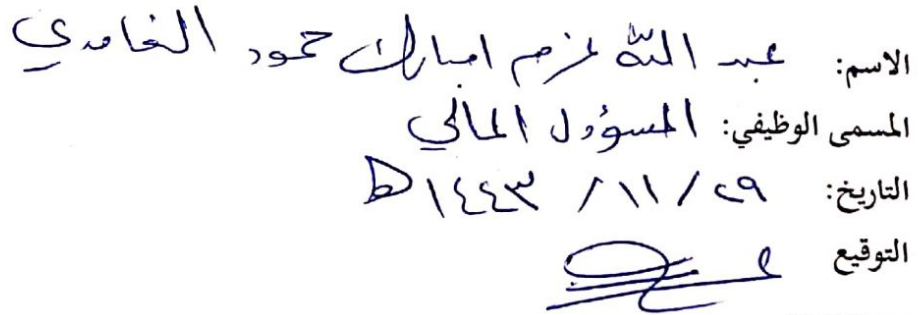 الاسم: عبد الله عزم امبارك حمود الغامدي
المسمى الوظيفي: المسؤول المالي
التاريخ: ٢٩ / ١١ / ١٤٤٣ه
التوقيع